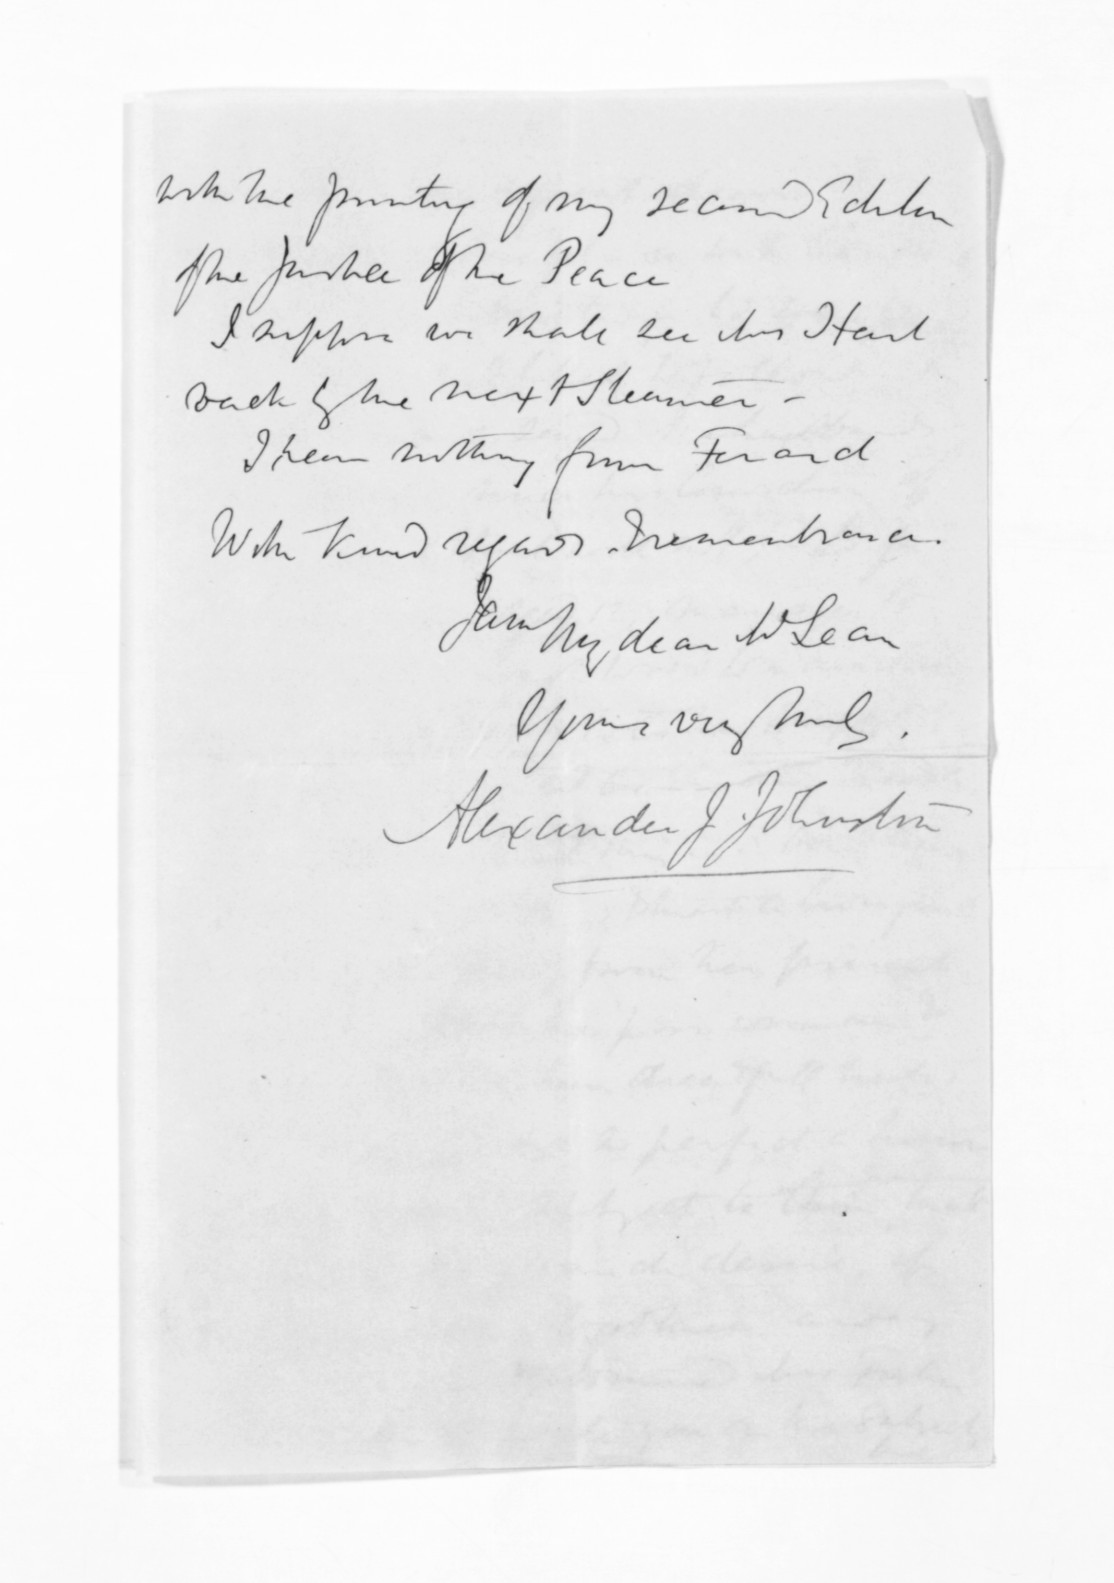 with the printing of my second Edition
of the Justice of the Peace
I suppose we shall see
back by the next Steamer -
I hear nothing from Ferard
With kind regards & remembrances.
I am My dear McLean
Yours very truly.
Alexander J. Johnston